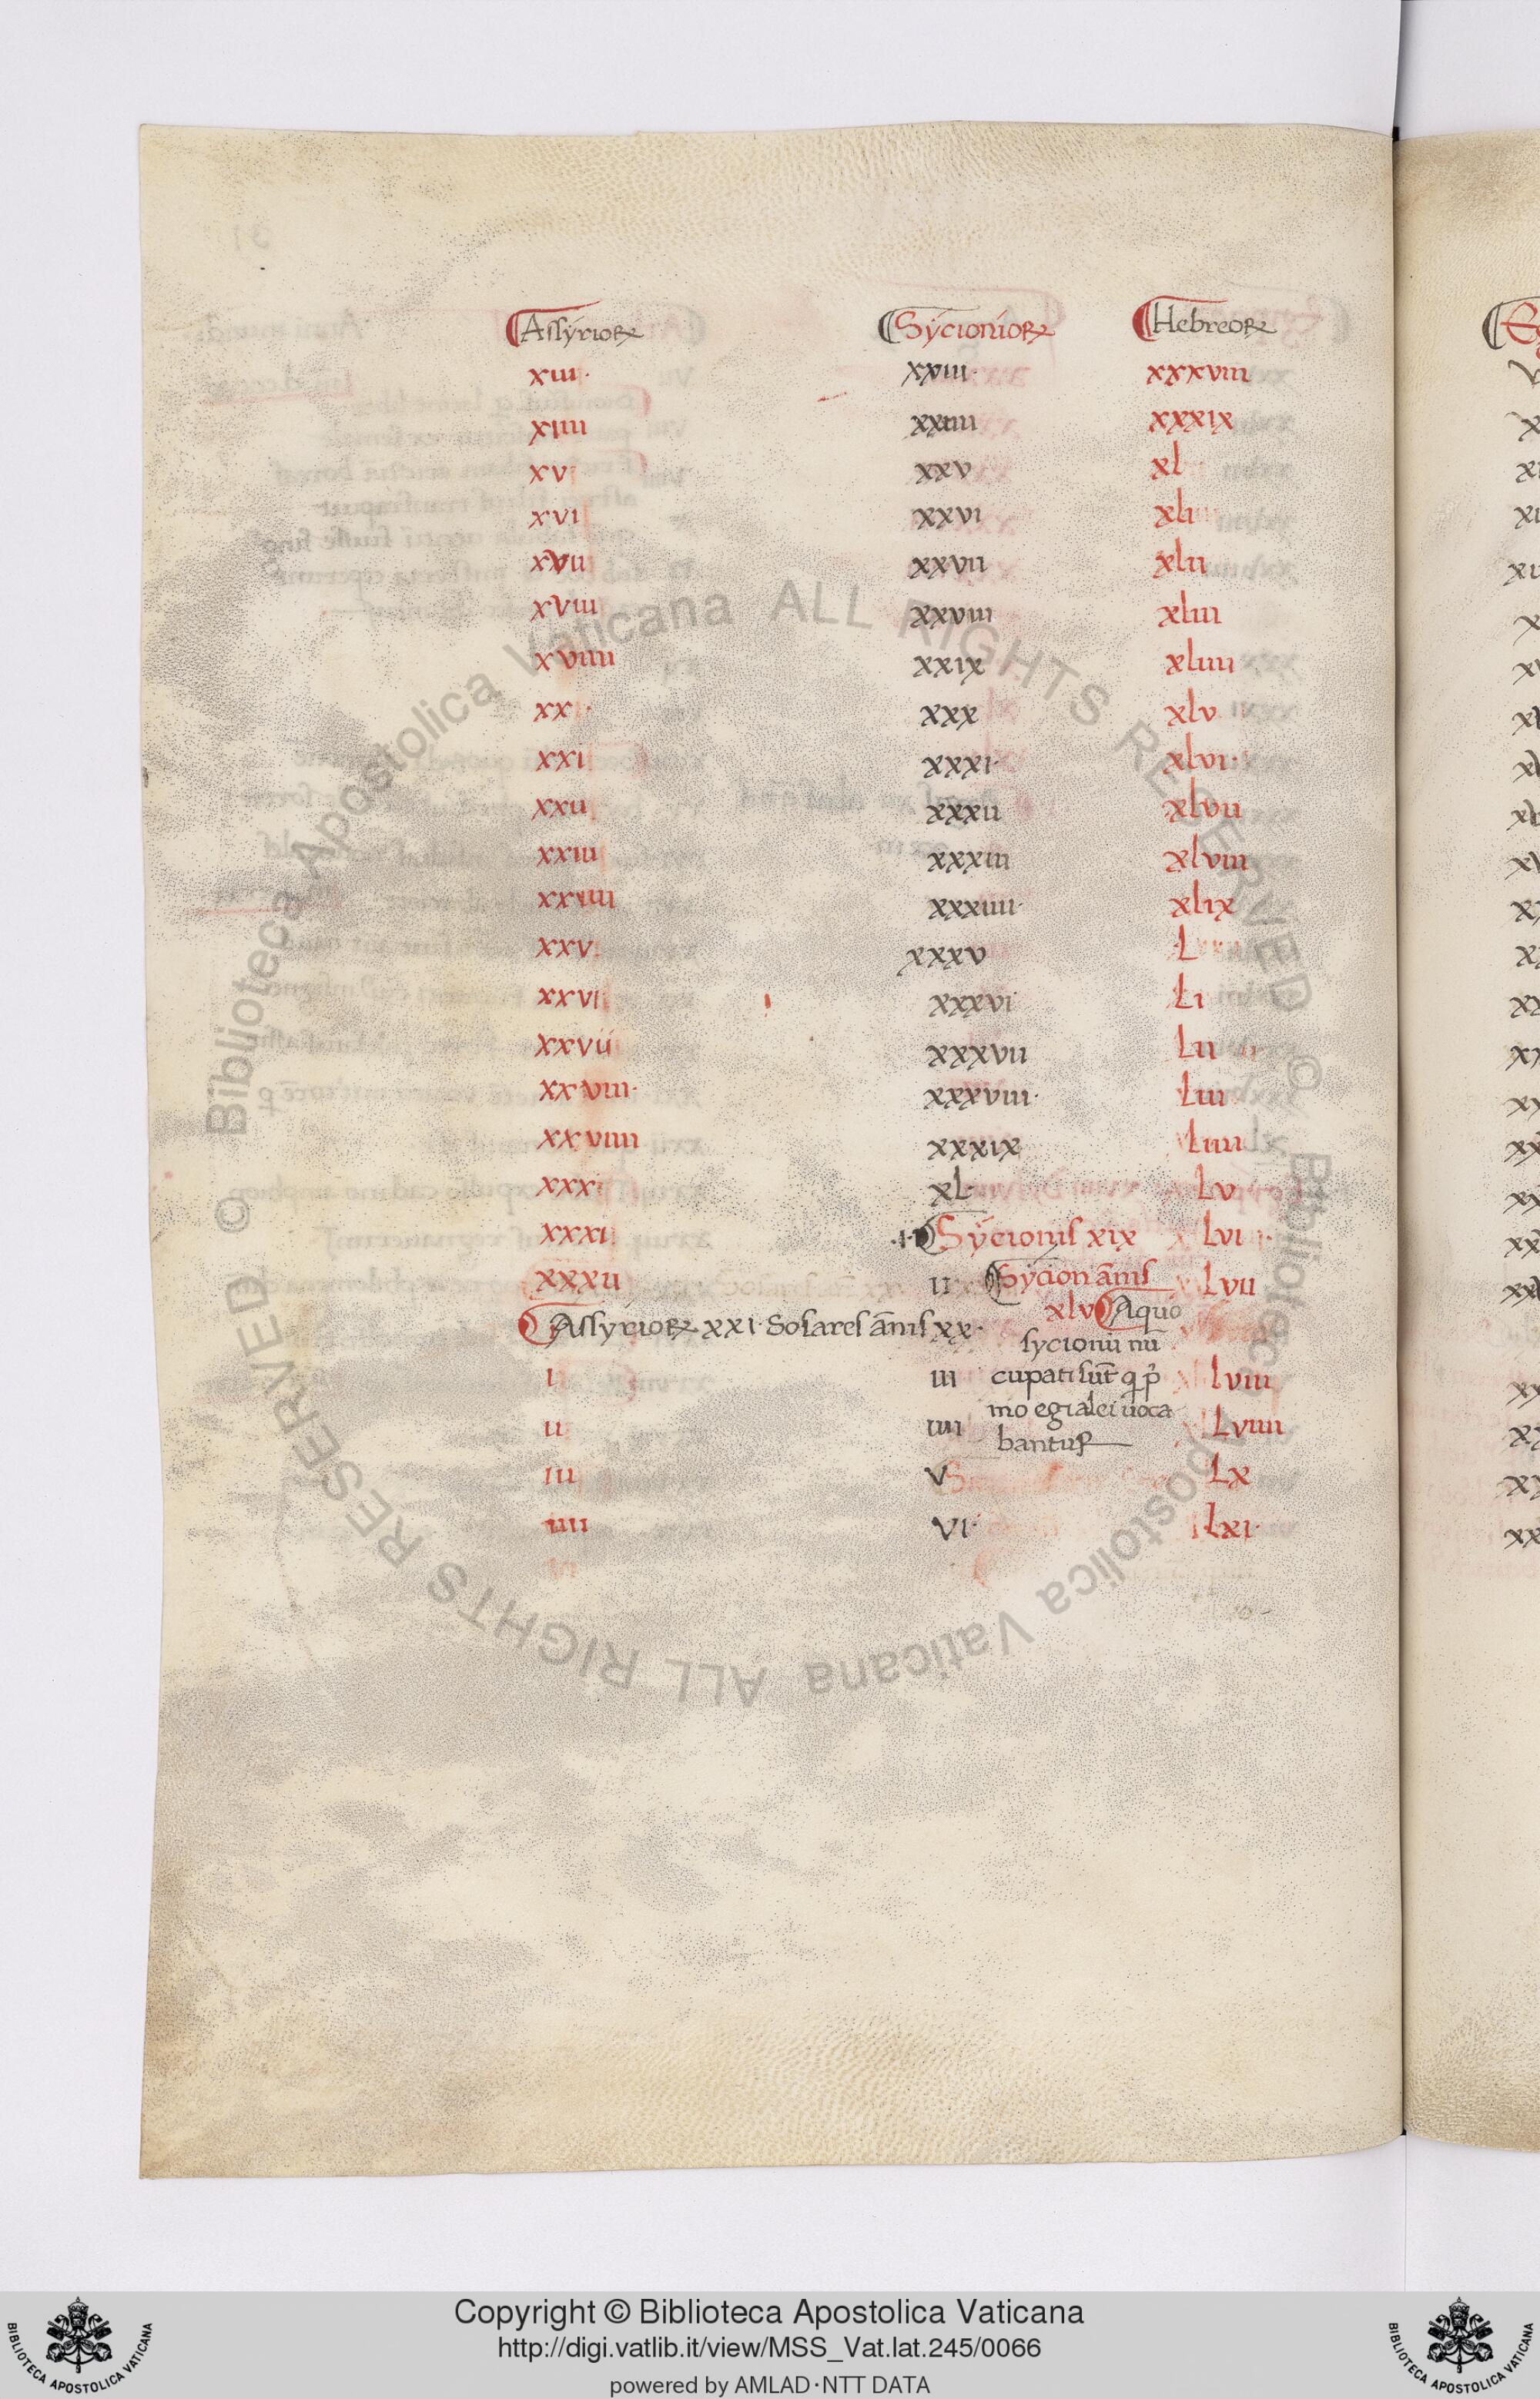 Assyrioꝝ Sycionioꝝ Hebreoꝝ
xiii· xxiii· xxxviii
xiiii xxiiii xxxix
xv xxv xl
xvi xxvi xli
xvii xxvii xlii
xviii xxviii xliii
xviiii xxix xliiii
xx· xxx xlv
xxi xxxi· xlvi·
xxii xxxii xlvii
xxiii xxxiii xlviii
xxiiii xxxiiii· xlix
xxv xxxv L
xxvi xxxvi Li
xxvii xxxvii Lii
xxviii· xxxviii· Liii
xxviiii xxxix Liiii
xxxi xL Lv
xxxi ·I· Sycionis xix Lvi
xxxii ii Sycion āNis Lvii
xlv Aquo
Assyrioꝝ xxi· Sosares āNis xx·
sycionii nū
i iii cupati sūt q̇ ṗ Lviii
mo egialei uoca
ii iiii Lviiii
bantur
iii v Lx
iiii vi· Lxi·
Copyright © Biblioteca Apostolica Vaticana
http://digi.vatlib.it/view/MSS_Vat.lat.245/0066
powered by AMLAD·NTT DATA
BIBLIOTECA APOSTOLICA VATICANA
BIBLIOTECA APOSTOLICA VATICANA
© Biblioteca Apostolica Vaticana ALL RIGHTS RESERVED
© Biblioteca Apostolica Vaticana ALL RIGHTS RESERVED